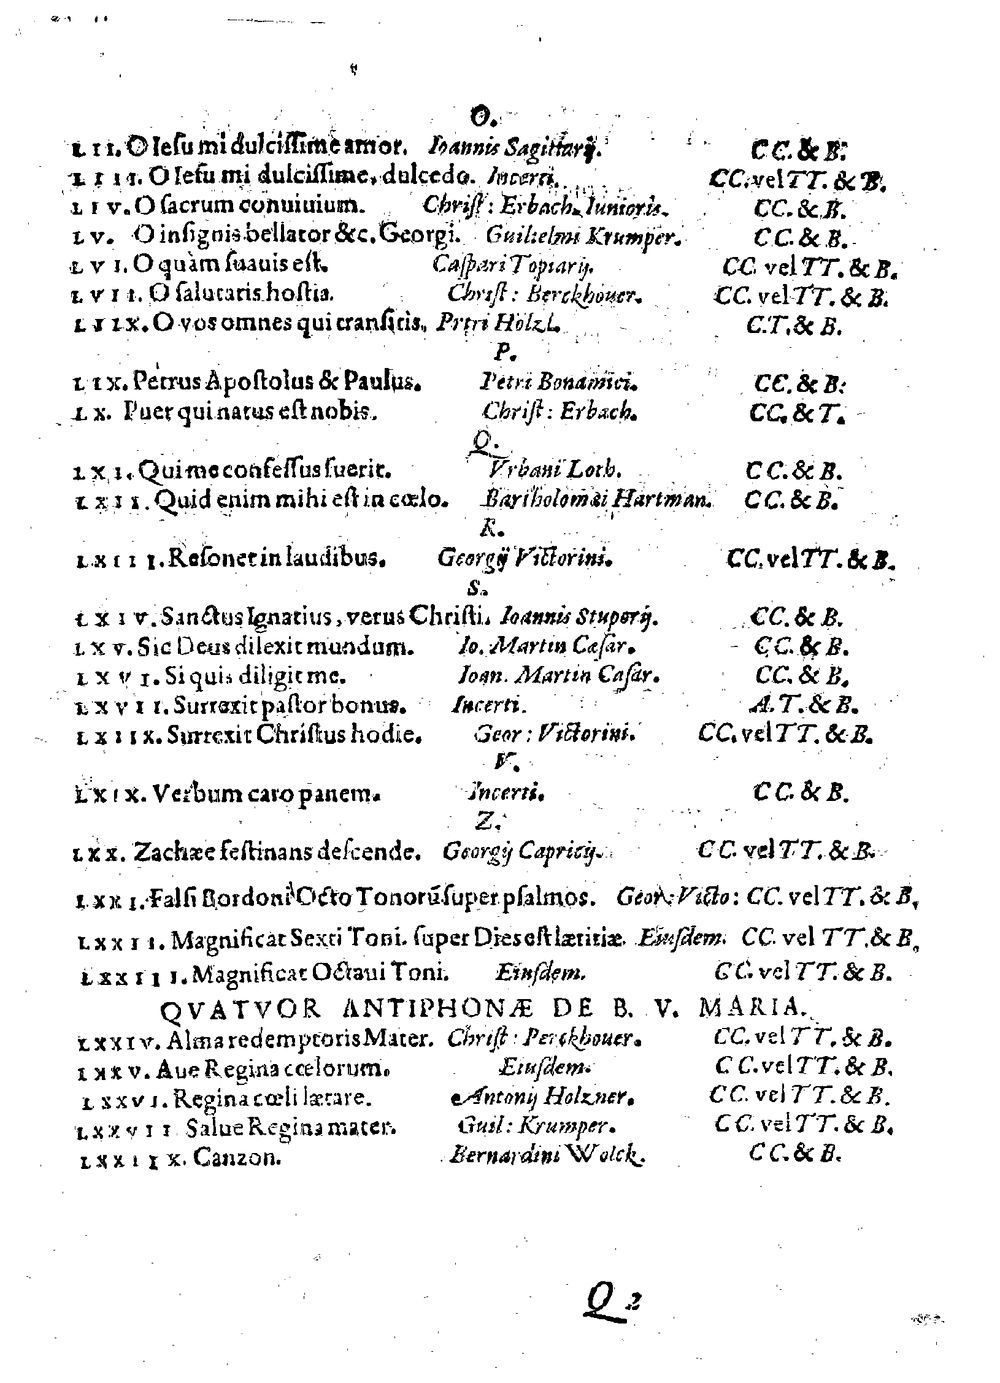 O.
LII. O Iesu mi dulcissime amor. Ioannis Sagittarij. CC. & B.
LIII. O Iesu mi dulcissime, dulcedo. Incerti. CC. vel TT. & B.
LIV. O sacrum conuiuium. Christ: Erbach. Iunioris. CC. & B.
LV. O insignis bellator &c. Georgi. Guilielmi Krumper. CC. & B.
LVI. O quàm suauis est. Caspari Topiarij. CC. vel TT. & B.
LVII. O salutaris hostia. Christ: Berckhouer. CC. vel TT. & B.
LIIX. O vos omnes qui transitis. Petri Hölzl. C.T. & B.
P.
LIX. Petrus Apostolus & Paulus. Petri Bonamici. CC. & B.
LX. Puer qui natus est nobis. Christ: Erbach. CC. & T.
Q.
LXI. Qui me confessus fuerit. Vrbani Loth. CC. & B.
LXII. Quid enim mihi est in cœlo. Bartholomæi Hartman. CC. & B.
R.
LXIII. Resonet in laudibus. Georgij Victorini. CC. vel TT. & B.
S.
LXIV. Sanctus Ignatius, verus Christi. Ioannis Stuperij. CC. & B.
LXV. Sic Deus dilexit mundum. Io. Martin Cæsar. CC. & B.
LXVI. Si quis diligit me. Ioan. Martin Cæsar. CC. & B.
LXVII. Surrexit pastor bonus. Incerti. A.T. & B.
LXIIX. Surrexit Christus hodie. Geor: Victorini. CC. vel TT. & B.
V.
LXIX. Verbum caro panem. Incerti. CC. & B.
Z.
LXX. Zachæe festinans descende. Georgij Capricij. CC. vel TT. & B.
LXXI. Falsi Bordoni Octo Tonorū super psalmos. Geor: Victo: CC. vel TT. & B.
LXXII. Magnificat Sexti Toni. super Dies est lætitiæ. Eiusdem. CC. vel TT. & B.
LXXIII. Magnificat Octaui Toni. Eiusdem. CC. vel TT. & B.
QVATVOR ANTIPHONÆ DE B. V. MARIA.
LXXIV. Alma redemptoris Mater. Christ: Perckhouer. CC. vel TT. & B.
LXXV. Aue Regina cœlorum. Eiusdem. CC. vel TT. & B.
LXXVI. Regina cœli lætare. Antonij Holzner. CC. vel TT. & B.
LXXVII Salue Regina mater. Guil: Krumper. CC. vel TT. & B.
LXXIIX. Canzon. Bernardini Wolck. CC. & B.
Q 2